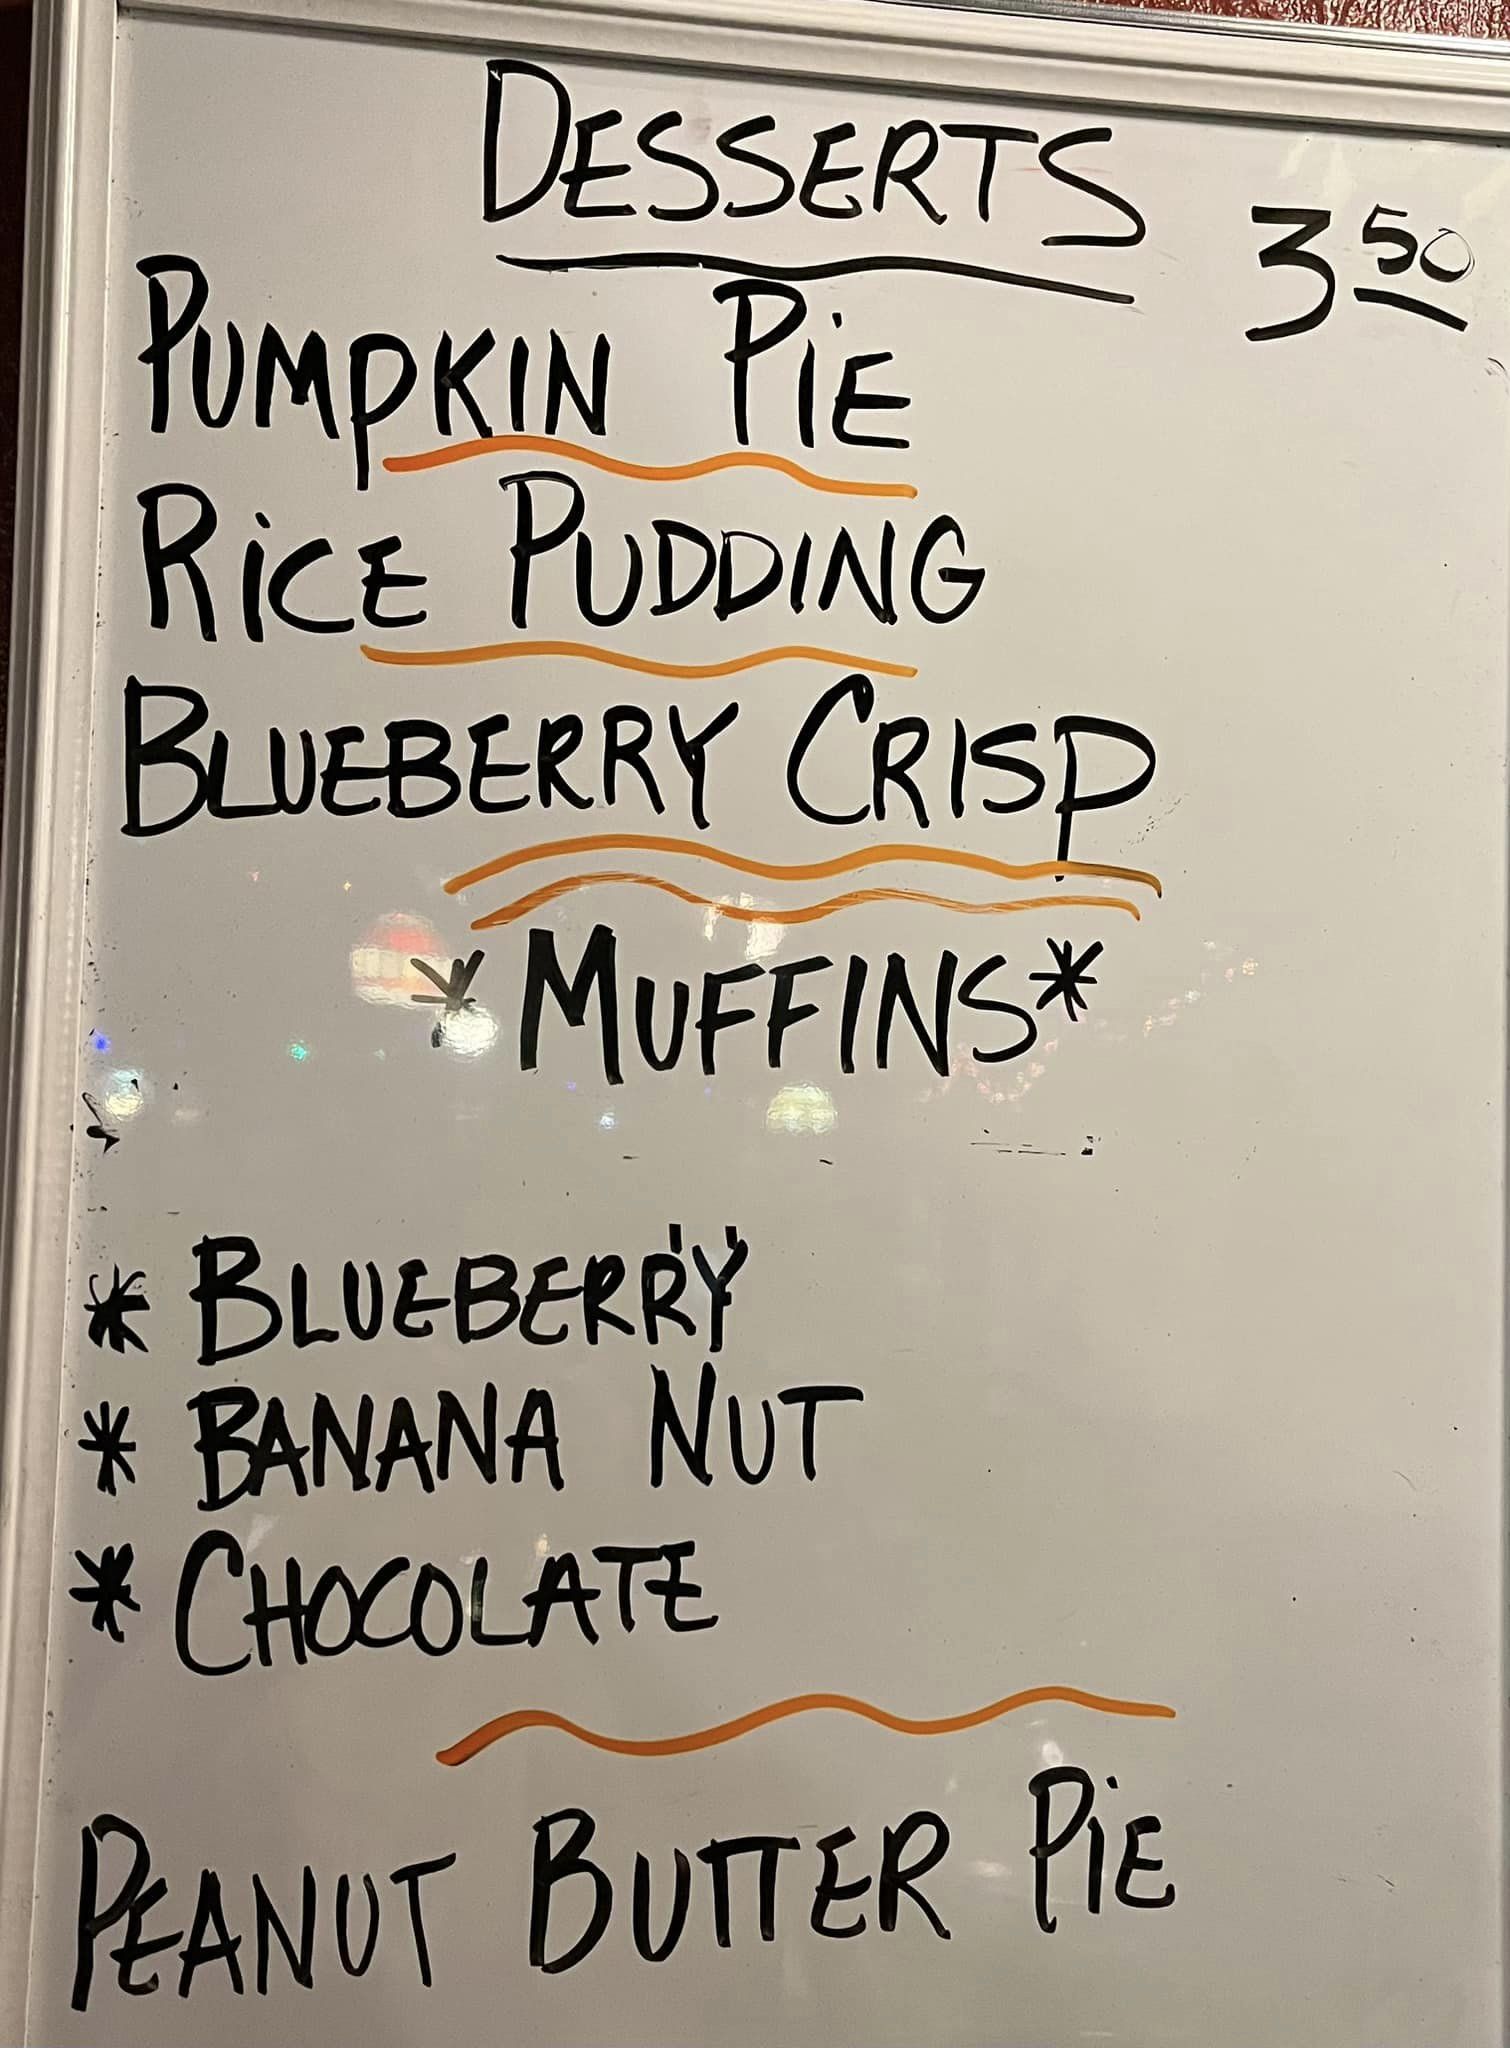 DESSERTS 3 50
PUMPKIN PiE
RiCE PUDDING
BLUEBERRY CRISP
* MUFFINS *
* BLUEBERRY
* BANANA NUT
* CHOCOLATE
PEANUT BUTTER PiE